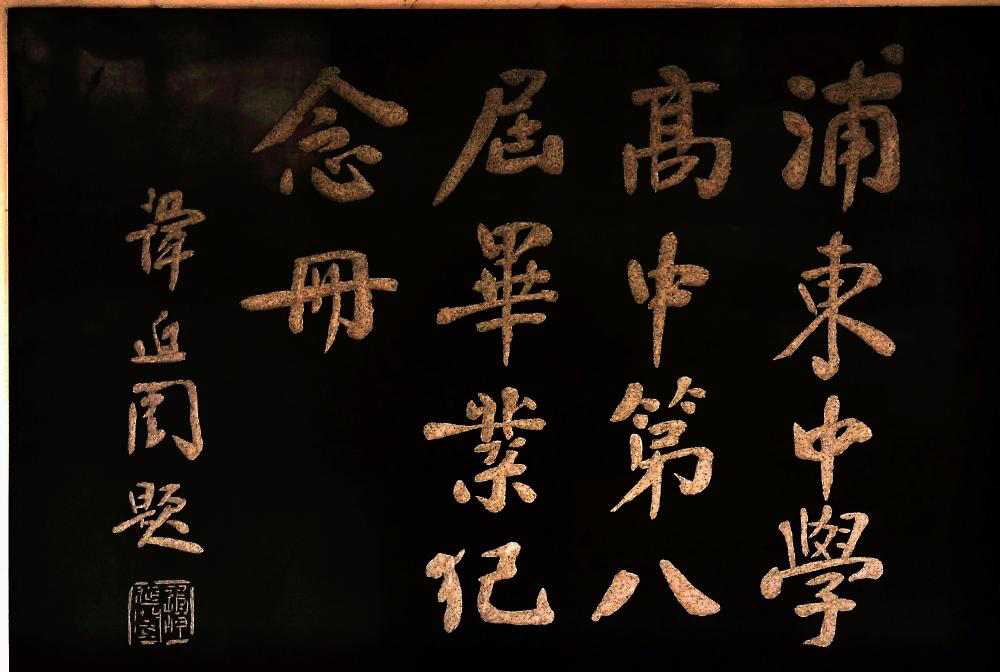 浦東中學
高中第八
屆畢業紀
念冊
題